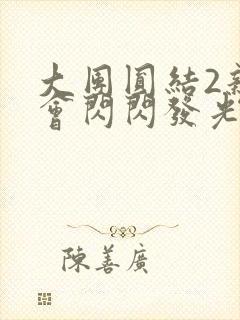 大團圓結2
會閃閃發光
陳善廣